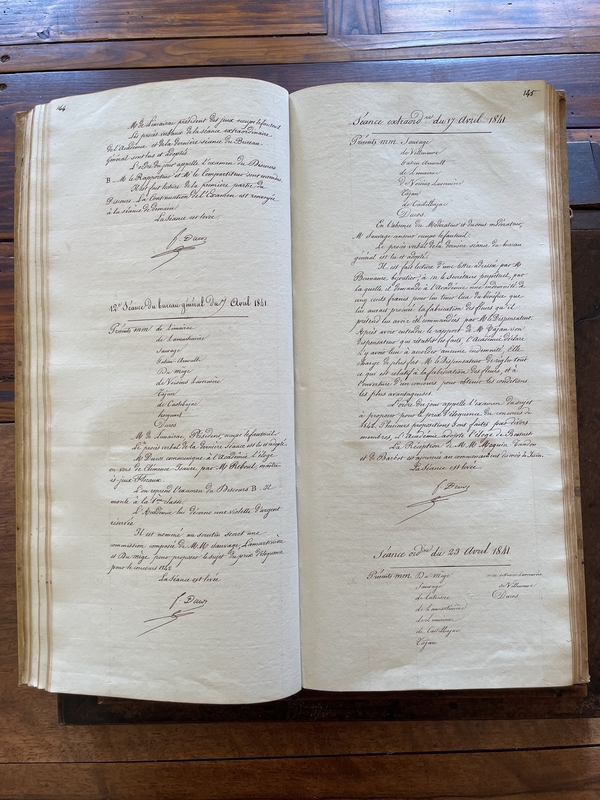 144
Mr de Limairac président des jeux occupe le fauteuil.
Les procès verbaux de la séance extraordinaire
de l'Académie et de la dernière séance du Bureau
Général sont lus et adoptés.
L'ordre du jour appelle l'examen du Discours
B. Mr le Rapporteur et Mr le Compartiteur sont entendus.
Il est fait lecture de la première partie du
Discours. La Continuation de l'Examen est renvoyée
à la séance de demain.
La Séance est levée
J. Ducos
12e Séance du bureau général du 7 Avril 1841.
Présents mm. de Limairac
de Lamartinière
Sauvage
Du Mège
Tajan
de Castelbajac
Ducos
Mr de Limairac, Président, occupe le fauteuil.
Le procès verbal de la dernière séance est lu et adopté.
Mr Ducos communique à l'Académie l'éloge
en vers de Clémence Isaure par Mr Reboul, maître
ès-jeux Floraux.
L'on reprend l'examen du Discours B. Il
monte à la 1ère classe.
L'Académie lui décerne une violette d'argent
réservée.
Il est nommé au scrutin secret une
commission composée de M.M. Sauvage, Lamartinière
et Du Mège pour proposer le sujet du prix d'éloquence
pour le concours 1842
La Séance est levée
J. Ducos
145
Séance extraordre du 17 Avril 1841
Présents mm. Sauvage
de Villeneuve
de Limairac
Tajan
de Castelbajac
Ducos
En l'absence du Modérateur et du sous modérateur,
Mr Sauvage censeur occupe le fauteuil.
Le procès verbal de la dernière séance du bureau
général est lu et adopté.
Il est fait lecture d'une lettre adressée par Mr
bijoutier, à Mr le Secrétaire perpétuel, par
laquelle il demande à l'Académie une indemnité de
cinq cents francs pour lui tenir lieu du bénéfice que
lui aurait procuré la fabrication des fleurs qu'il
prétend lui avoir été commandées par Mr le Dispensateur.
Après avoir entendu le rapport de Mr Tajan son
Dispensateur qui rétablit les faits, l'Académie déclare
n'y avoir lieu à accorder aucune indemnité. Elle
charge de plus fort Mr le Dispensateur de régler tout
ce qui est relatif à la fabrication des fleurs, et à
l'ouverture d'un concours pour obtenir les conditions
les plus avantageuses.
L'ordre du jour appelle l'examen du sujet
à proposer pour le prix d'éloquence du concours de
1842. Plusieurs propositions sont faites par divers
membres, L'Académie adopte l'éloge de Bossuet
La Réception de M.M. Moquin Tandon
et de Barbot est ajournée au commencement du mois de Juin.
La Séance est levée.
J. Ducos
Séance ordre du 23 Avril 1841
Présents mm. Du Mège
Sauvage
de Lamartinière
de Limairac
de Castelbajac
Tajan
de Villeneuve
Ducos